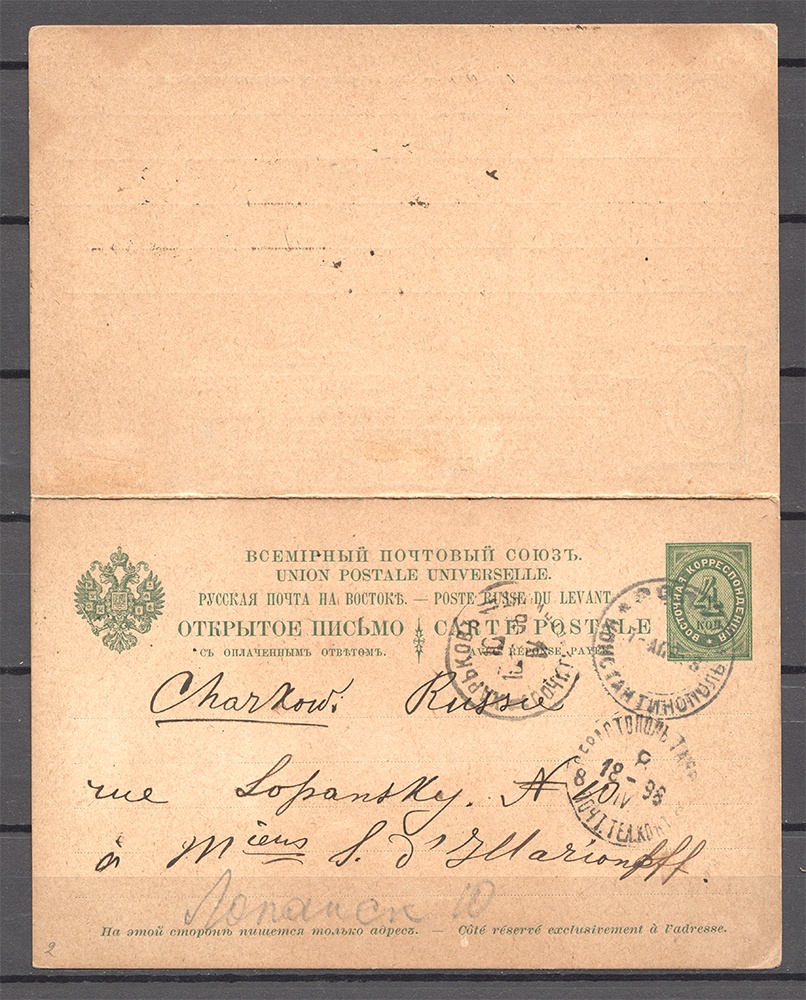 ВСЕМІРНЫЙ ПОЧТОВЫЙ СОЮЗЪ.
UNION POSTALE UNIVERSELLE.
РУССКАЯ ПОЧТА НА ВОСТОКѢ. — POSTE RUSSE DU LEVANT
ОТКРЫТОЕ ПИСЬМО CARTE POSTALE
СЪ ОПЛАЧЕННЫМЪ ОТВѢТОМЪ. AVEC RÉPONSE PAYÉE
ВОСТОЧНАЯ КОРРЕСПОНДЕНЦІЯ
4
КОП.
ХАРЬКОВ
КОНСТАНТИНОПОЛЬ
Charkow. Russie
СЕВАСТОПОЛЬ ТАВР
8
18 - 98
IV
ПОЧТ. ТЕЛ. КОНТ
rue Lopansky. N 10
à Miens S. d'Illarionoff.
Лопанск 10
На этой сторонѣ пишется только адресъ. — Côté réservé exclusivement à l'adresse.
2